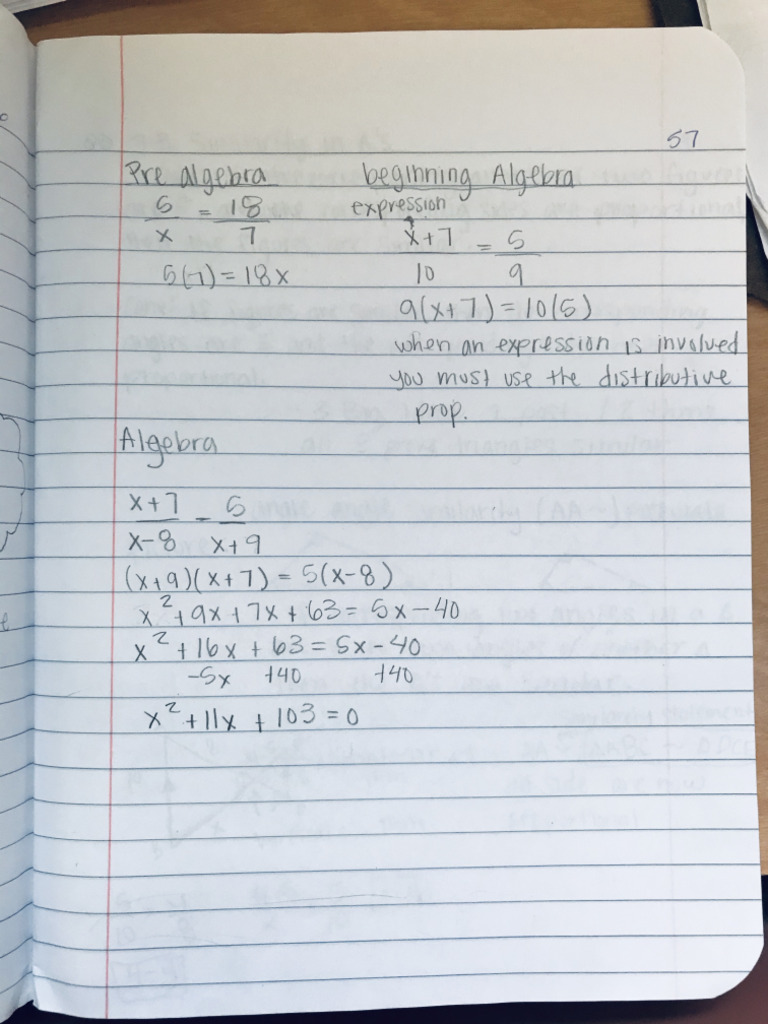 57
Pre algebra
5/x = 18/7
5(7) = 18x
beginning Algebra
expression
x+7/10 = 5/9
9(x+7) = 10(5)
when an expression is involved
you must use the distributive
prop.
Algebra
x+7/x-8 = 5/x+9
(x+9)(x+7) = 5(x-8)
x² + 9x + 7x + 63 = 5x - 40
x² + 16x + 63 = 5x - 40
-5x +40 +40
x² + 11x + 103 = 0